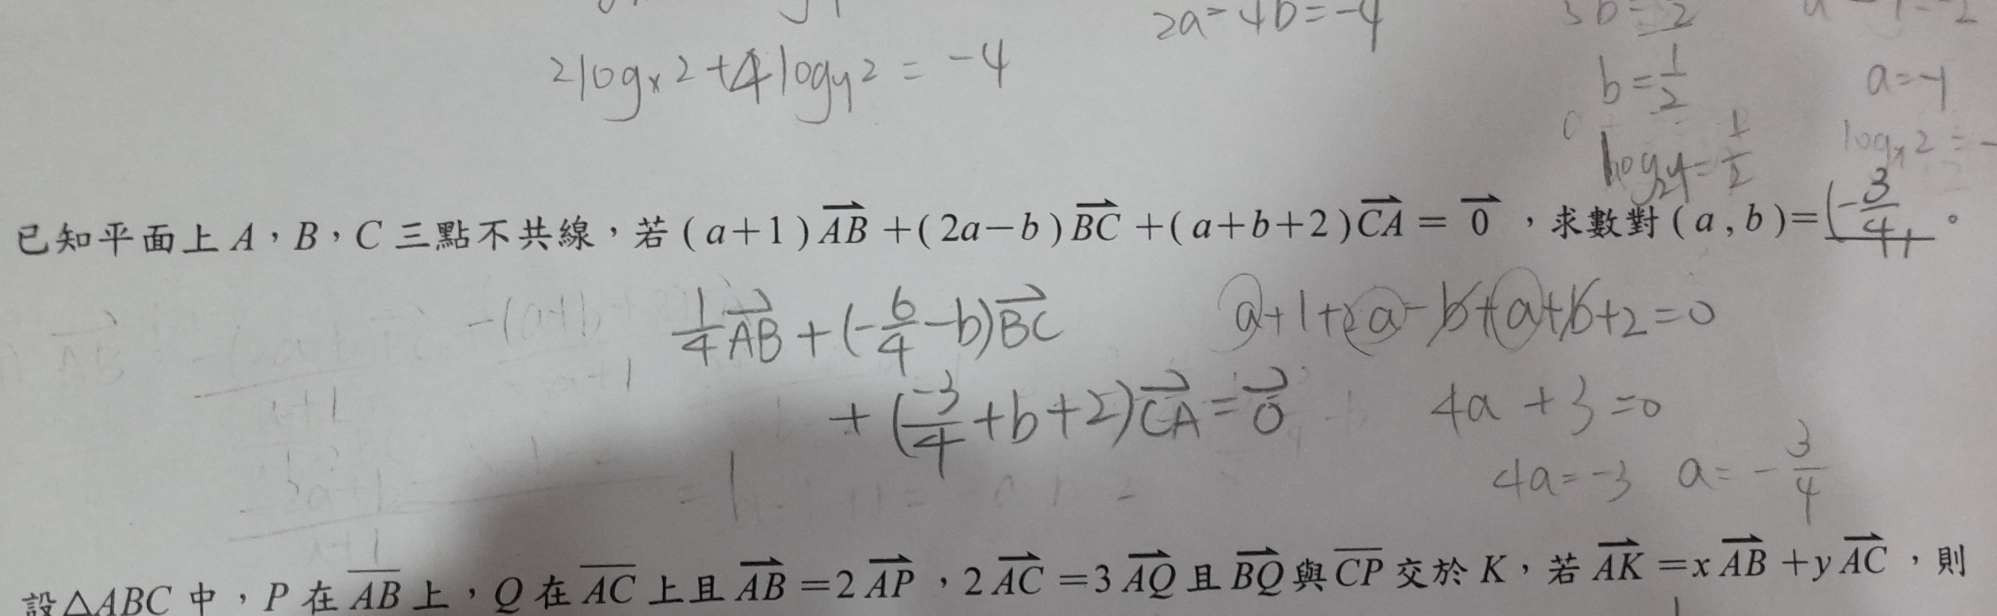 2a-4b=-4
b=2
2log_x 2+4log_y 2=-4
b=1/2
a=-1
log_2 y=1/2
log_x 2=-
已知平面上 A，B，C 三點不共線，若 (a+1)AB→+(2a-b)BC→+(a+b+2)CA→=0→，求數對 (a,b)=(-3/4,。
1/4 AB→+(-6/4-b)BC→
a+1+2a-b+a+b+2=0
+(-3/4+b+2)CA→=0→
4a+3=0
4a=-3 a=-3/4
設△ABC 中，P 在 AB 上，Q 在 AC 上且 AB→=2AP→，2AC→=3AQ→ 且 BQ→ 與 CP 交於 K，若 AK→=xAB→+yAC→，則